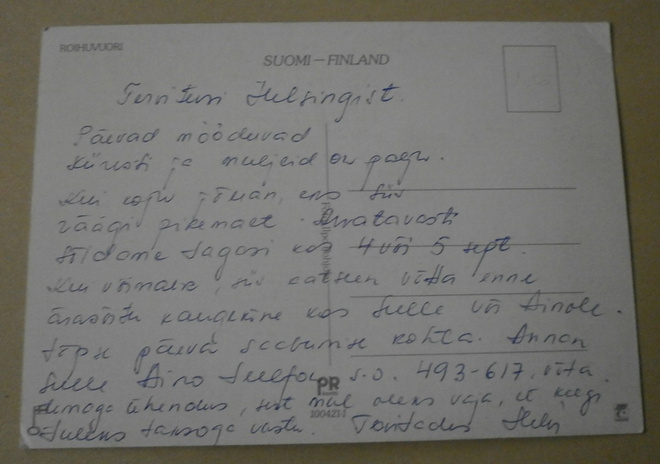 ROIHUVUORI
SUOMI – FINLAND
Tervitusi Helsingist.
Päevad mööduvad
kiiresti ja muljeid on palju.
Kui koju jõuan, eks siis
räägi pikemalt. Arvatavasti
sõidame tagasi kas 4 või 5 sept.
Kui võimalik, siis katsun võtta enne
ärasõitu kaugekõne kas Sulle või Ainole.
täpse päeva saabumise kohta. Annan
Sulle Aino telefon s.o. 493-617, võta
temaga ühendus, sest mul oleks vaja, et keegi
tuleks taksoga vastu. Tervitades
PR
100421-1